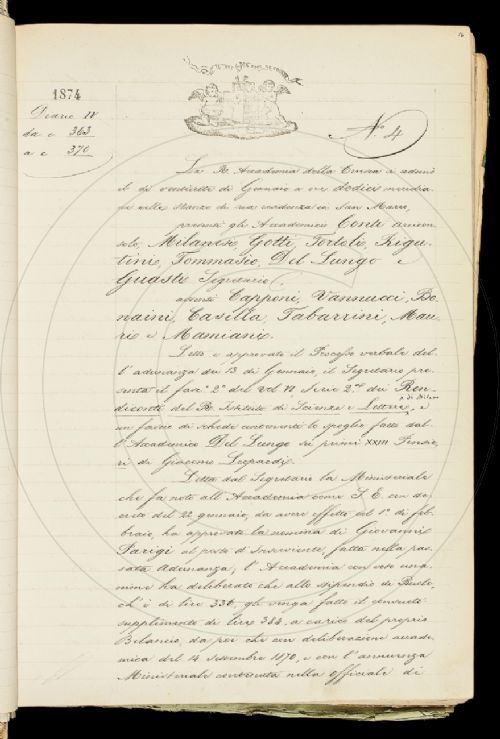 16
1874
Diario IV
da c 363
a c 370
N.º 4
La R. Accademia della Crusca si adunò
il dì ventisette di Gennaio a ore dodici meridia
ne nelle stanze di sua residenza in San Marco,
presenti gli Accademici Conti arcicon
solo, Milanesi, Gotti, Tortoli, Rigu-
tini, Tommaseo, Del Lungo e
Guasti Segretario;
assenti Capponi, Vannucci, Bo
naini, Casella, Tabarrini, Mau
ri e Mamiani.
Letto e approvato il Processo verbale del-
l'adunanza dei 13 di Gennaio, il Segretario pre
senta il fasc.º 2º del Vol VI Serie 2.ª dei Ren-
diconti del R. Istituto di Scienze e Lettere di Milano, e
un fascio di schede contenenti lo spoglio fatto dal
l'Accademico Del Lungo sui primi XXIII Pensie,
ri di Giacomo Leopardi.
Letta dal Segretario la Ministeriale
che fa noto all'Accademia come S. E. con de
creto del 22 gennaio, da avere effetto col 1º di feb
braio, ha approvato la nomina di Giovanni
Parigi al posto d'Inserviente, fatta nella pas
sata adunanza; l'Accademia con voto una
nime ha deliberato che allo stipendio di Ruolo,
ch'è di lire 336, gli venga fatto il consueto
supplimento di lire 384 a carico del proprio
Bilancio, da poi che con deliberazione accade
mica del 14 settembre 1870, e con l'annuenza
Ministeriale contenuta nella officiale di